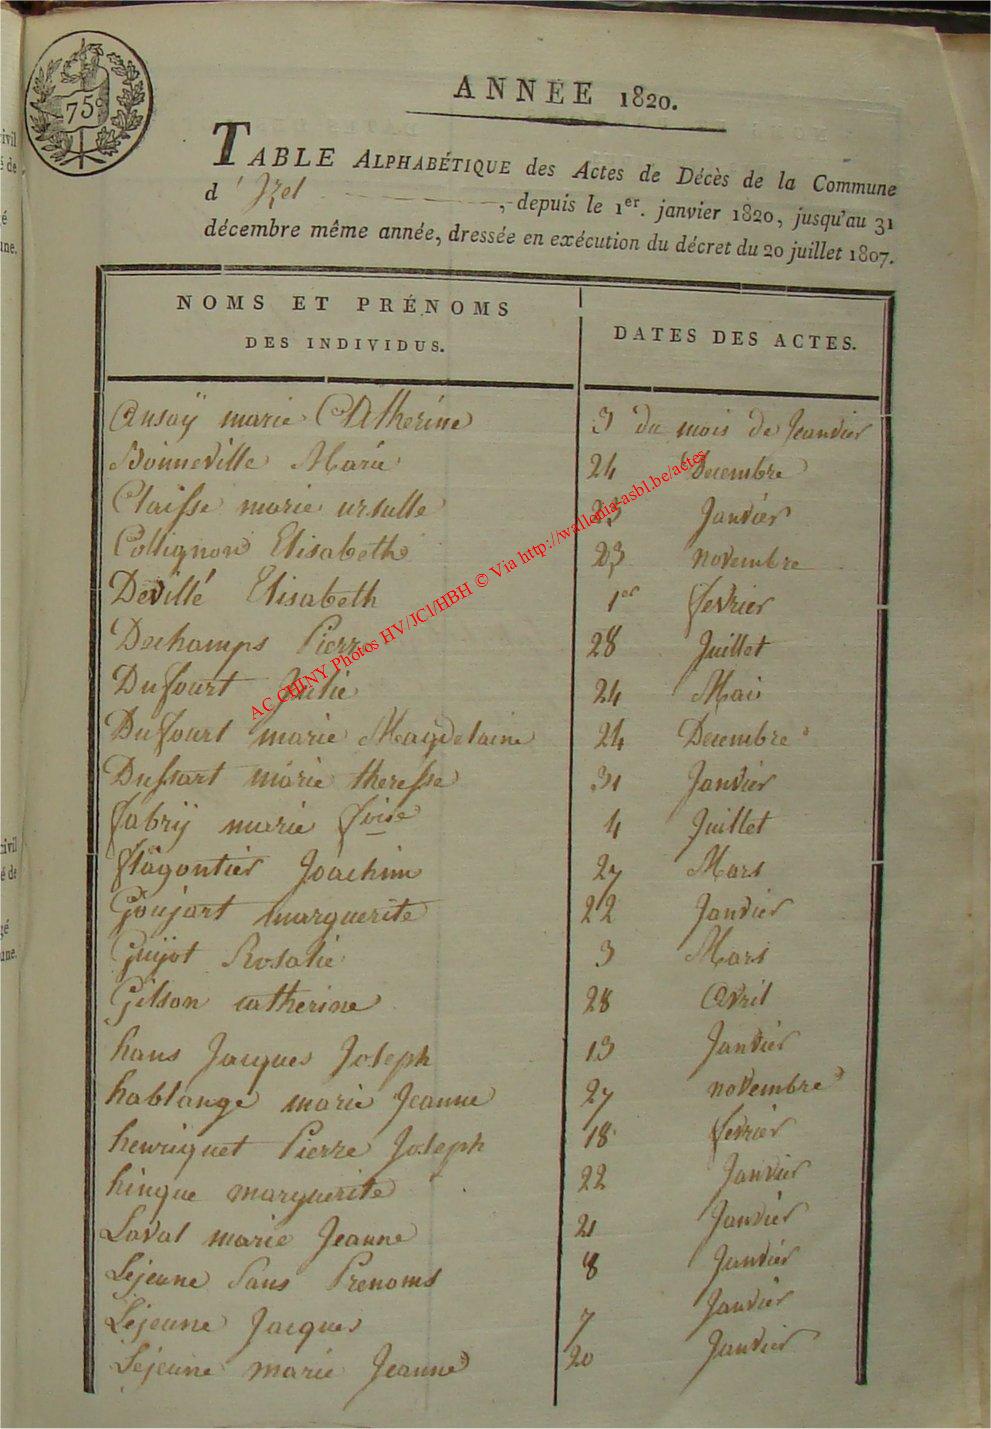 75c
ANNÉE 1820.
TABLE ALPHABÉTIQUE des Actes de Décès de la Commune
d'Izel, depuis le 1er. janvier 1820, jusqu'au 31
décembre même année, dressée en exécution du décret du 20 juillet 1807.
NOMS ET PRÉNOMS
DES INDIVIDUS.
DATES DES ACTES.
Ansaÿ marie Catherine 3 du mois de Jeanvier
Bonneville Marie 24 Decembre
Claisse marie ursulle 23 Janvier
Collignon Elisabeth 23 novembre
Devillé Elisabeth 1er fevrier
Deschamps Pierre 28 Juillet
Dufourt Julie 24 Mai
Dufourt marie Magdelaine 24 Decembre
Dussart marie theresse 31 Janvier
fabrÿ marie foise 4 Juillet
flagontier Joachim 27 Mars
Goujart marguerite 22 Janvier
Guÿot Rosalie 3 Mars
Gilson catherine 28 Avril
hans Jacques Joseph 13 Janvier
hablange marie Jeanne 27 novembre
henriquet Pierre Joseph 18 fevrier
hinque marguerite 22 Janvier
Laval marie Jeanne 21 Janvier
Lejeune Sans Prenoms 8 Janvier
Lejeune Jacques 7 Janvier
Lejeune marie Jeanne 20 Janvier
AC CHINY Photos HV/JCl/HBH © Via http://wallonia-asbl.be/actes
civil
é de
gé
une.
civil
é de
gé
une.